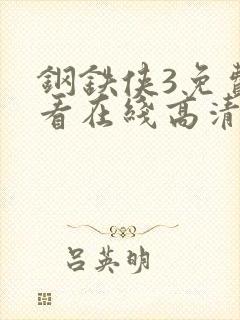 鋼鉄俠3免費
看在綫高清
吕英明